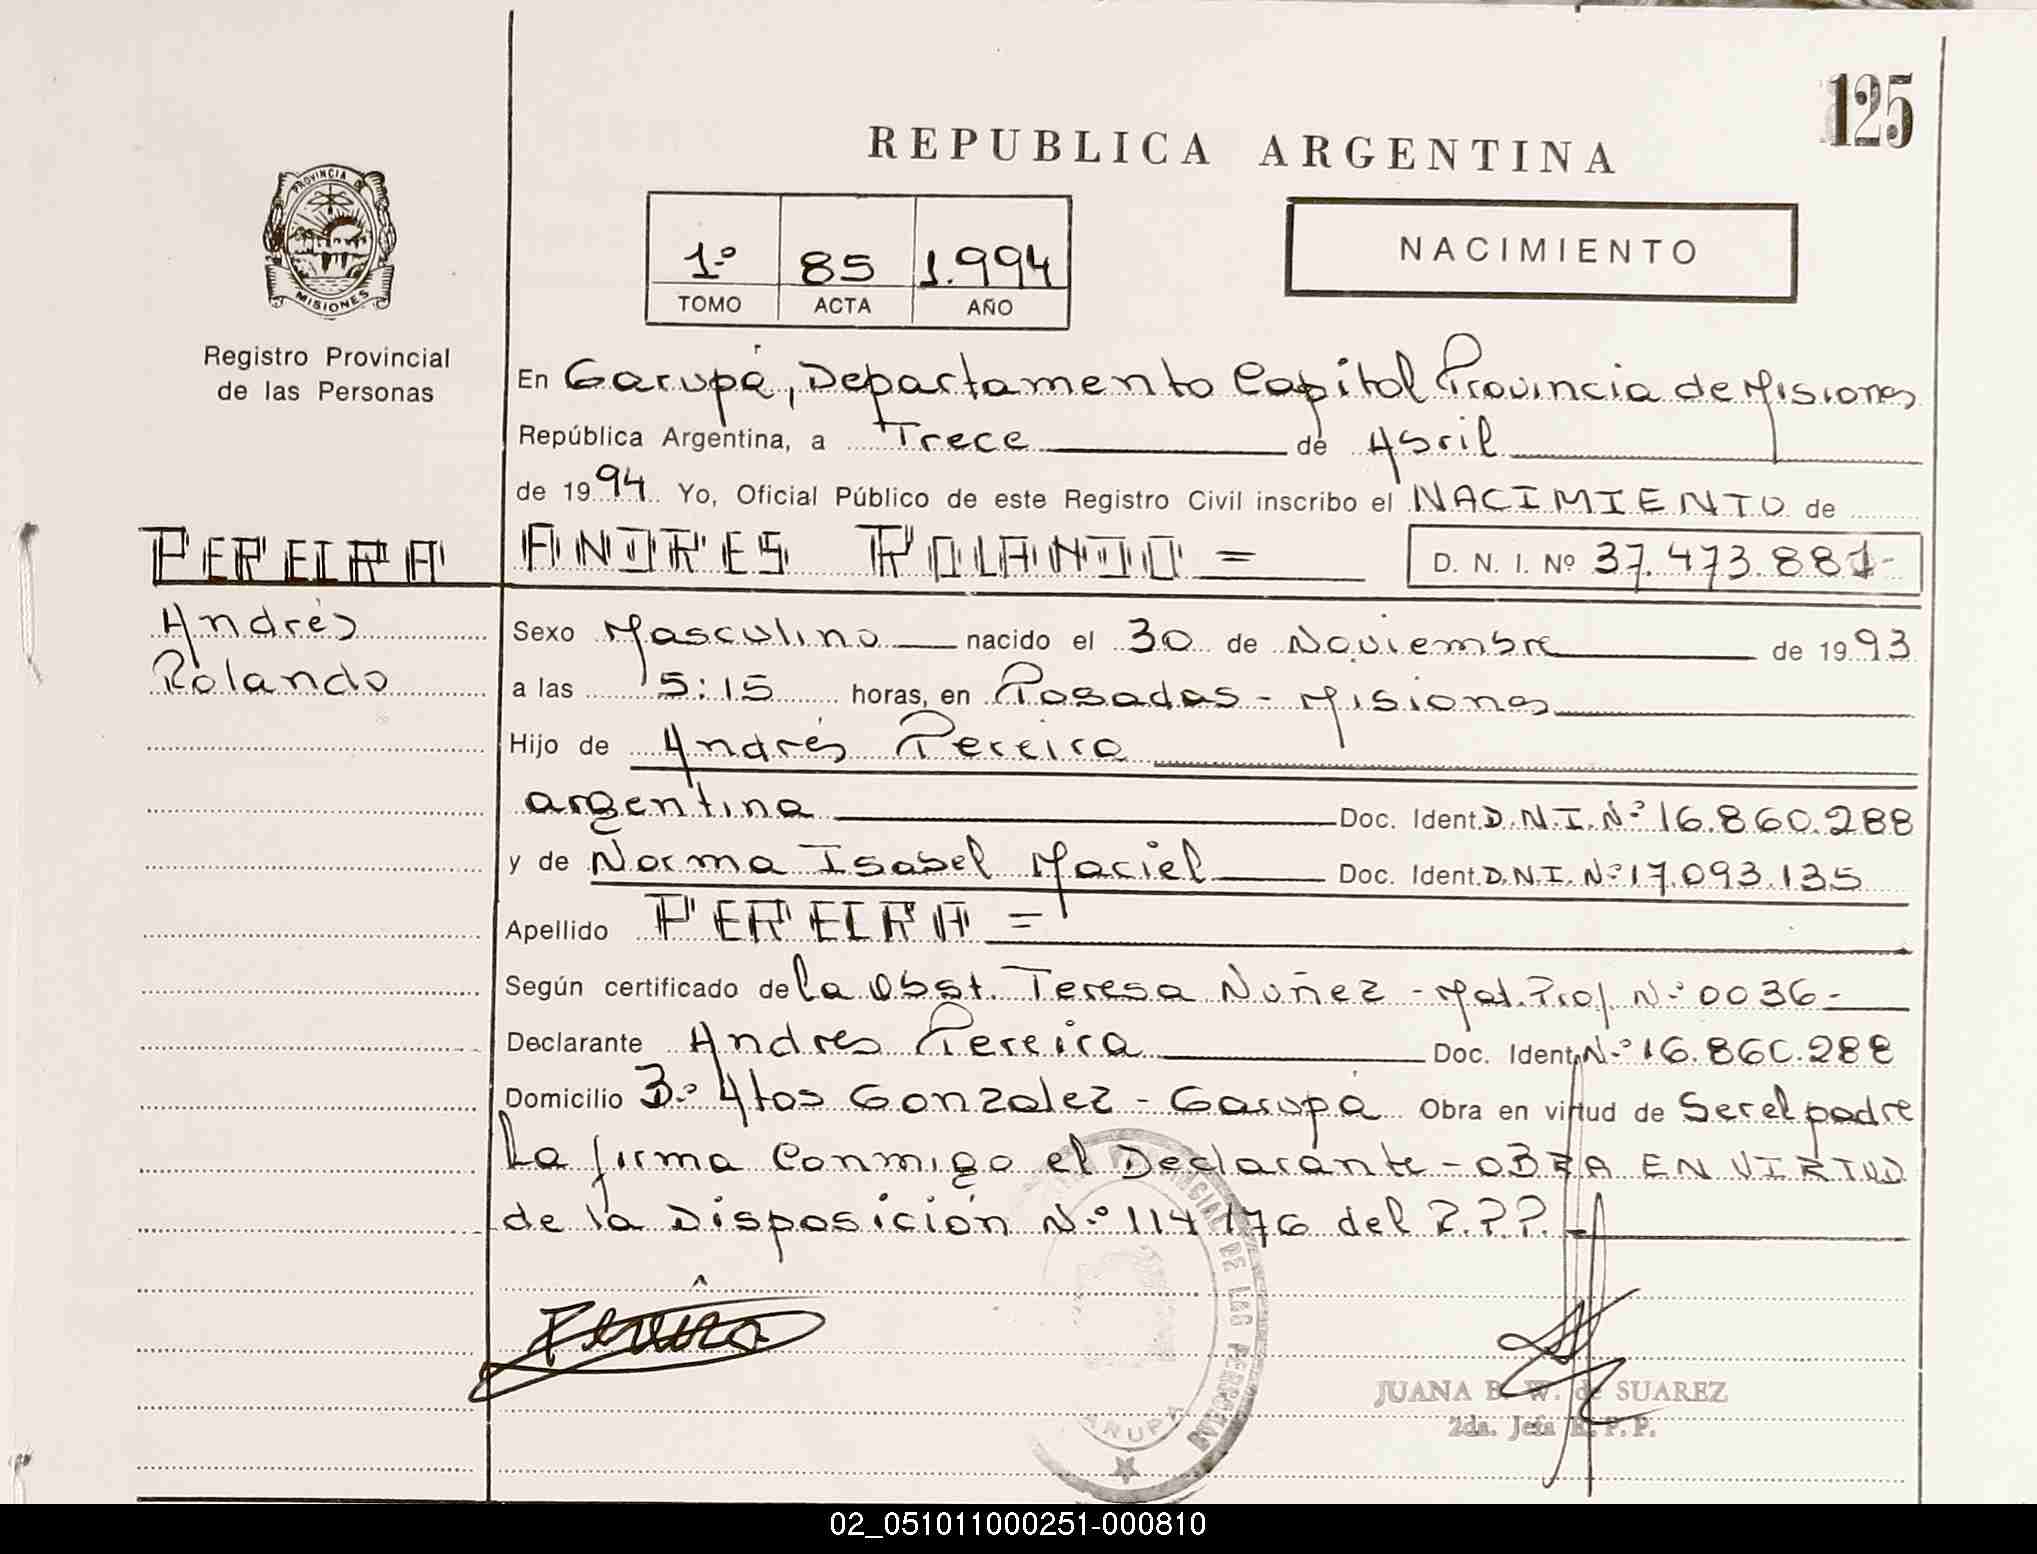 125
REPUBLICA ARGENTINA
PROVINCIA DE
MISIONES
Registro Provincial
de las Personas
1º 85 1.994
TOMO ACTA AÑO
NACIMIENTO
En Garupá, Departamento Capital Provincia de Misiones
República Argentina, a Trece de Abril
de 1994 Yo, Oficial Público de este Registro Civil inscribo el NACIMIENTO de
PEREIRA ANDRES ROLANDO = D. N. I. Nº 37.473.881-
Andrés
Rolando
Sexo Masculino nacido el 30 de Noviembre de 1993
a las 5:15 horas, en Posadas - Misiones
Hijo de Andrés Pereira
argentina Doc. Ident. D.N.I. Nº 16.860.288
y de Norma Isabel Maciel Doc. Ident. D.N.I. Nº 17.093.135
Apellido PEREIRA =
Según certificado de la Obst. Teresa Nuñez - Mat. Prof. Nº 0036-
Declarante Andres Pereira Doc. Ident. Nº 16.860.288
Domicilio Bº Altos Gonzalez - Garupá Obra en virtud de Ser el padre
La firma Conmigo el Declarante - OBRA EN VIRTUD
de la Disposición Nº 114/76 del R.P.P. -
Pereira
DE LAS PERSONAS
GARUPA
JUANA B. W. de SUAREZ
2da. Jefa R. P. P.
02_051011000251-000810